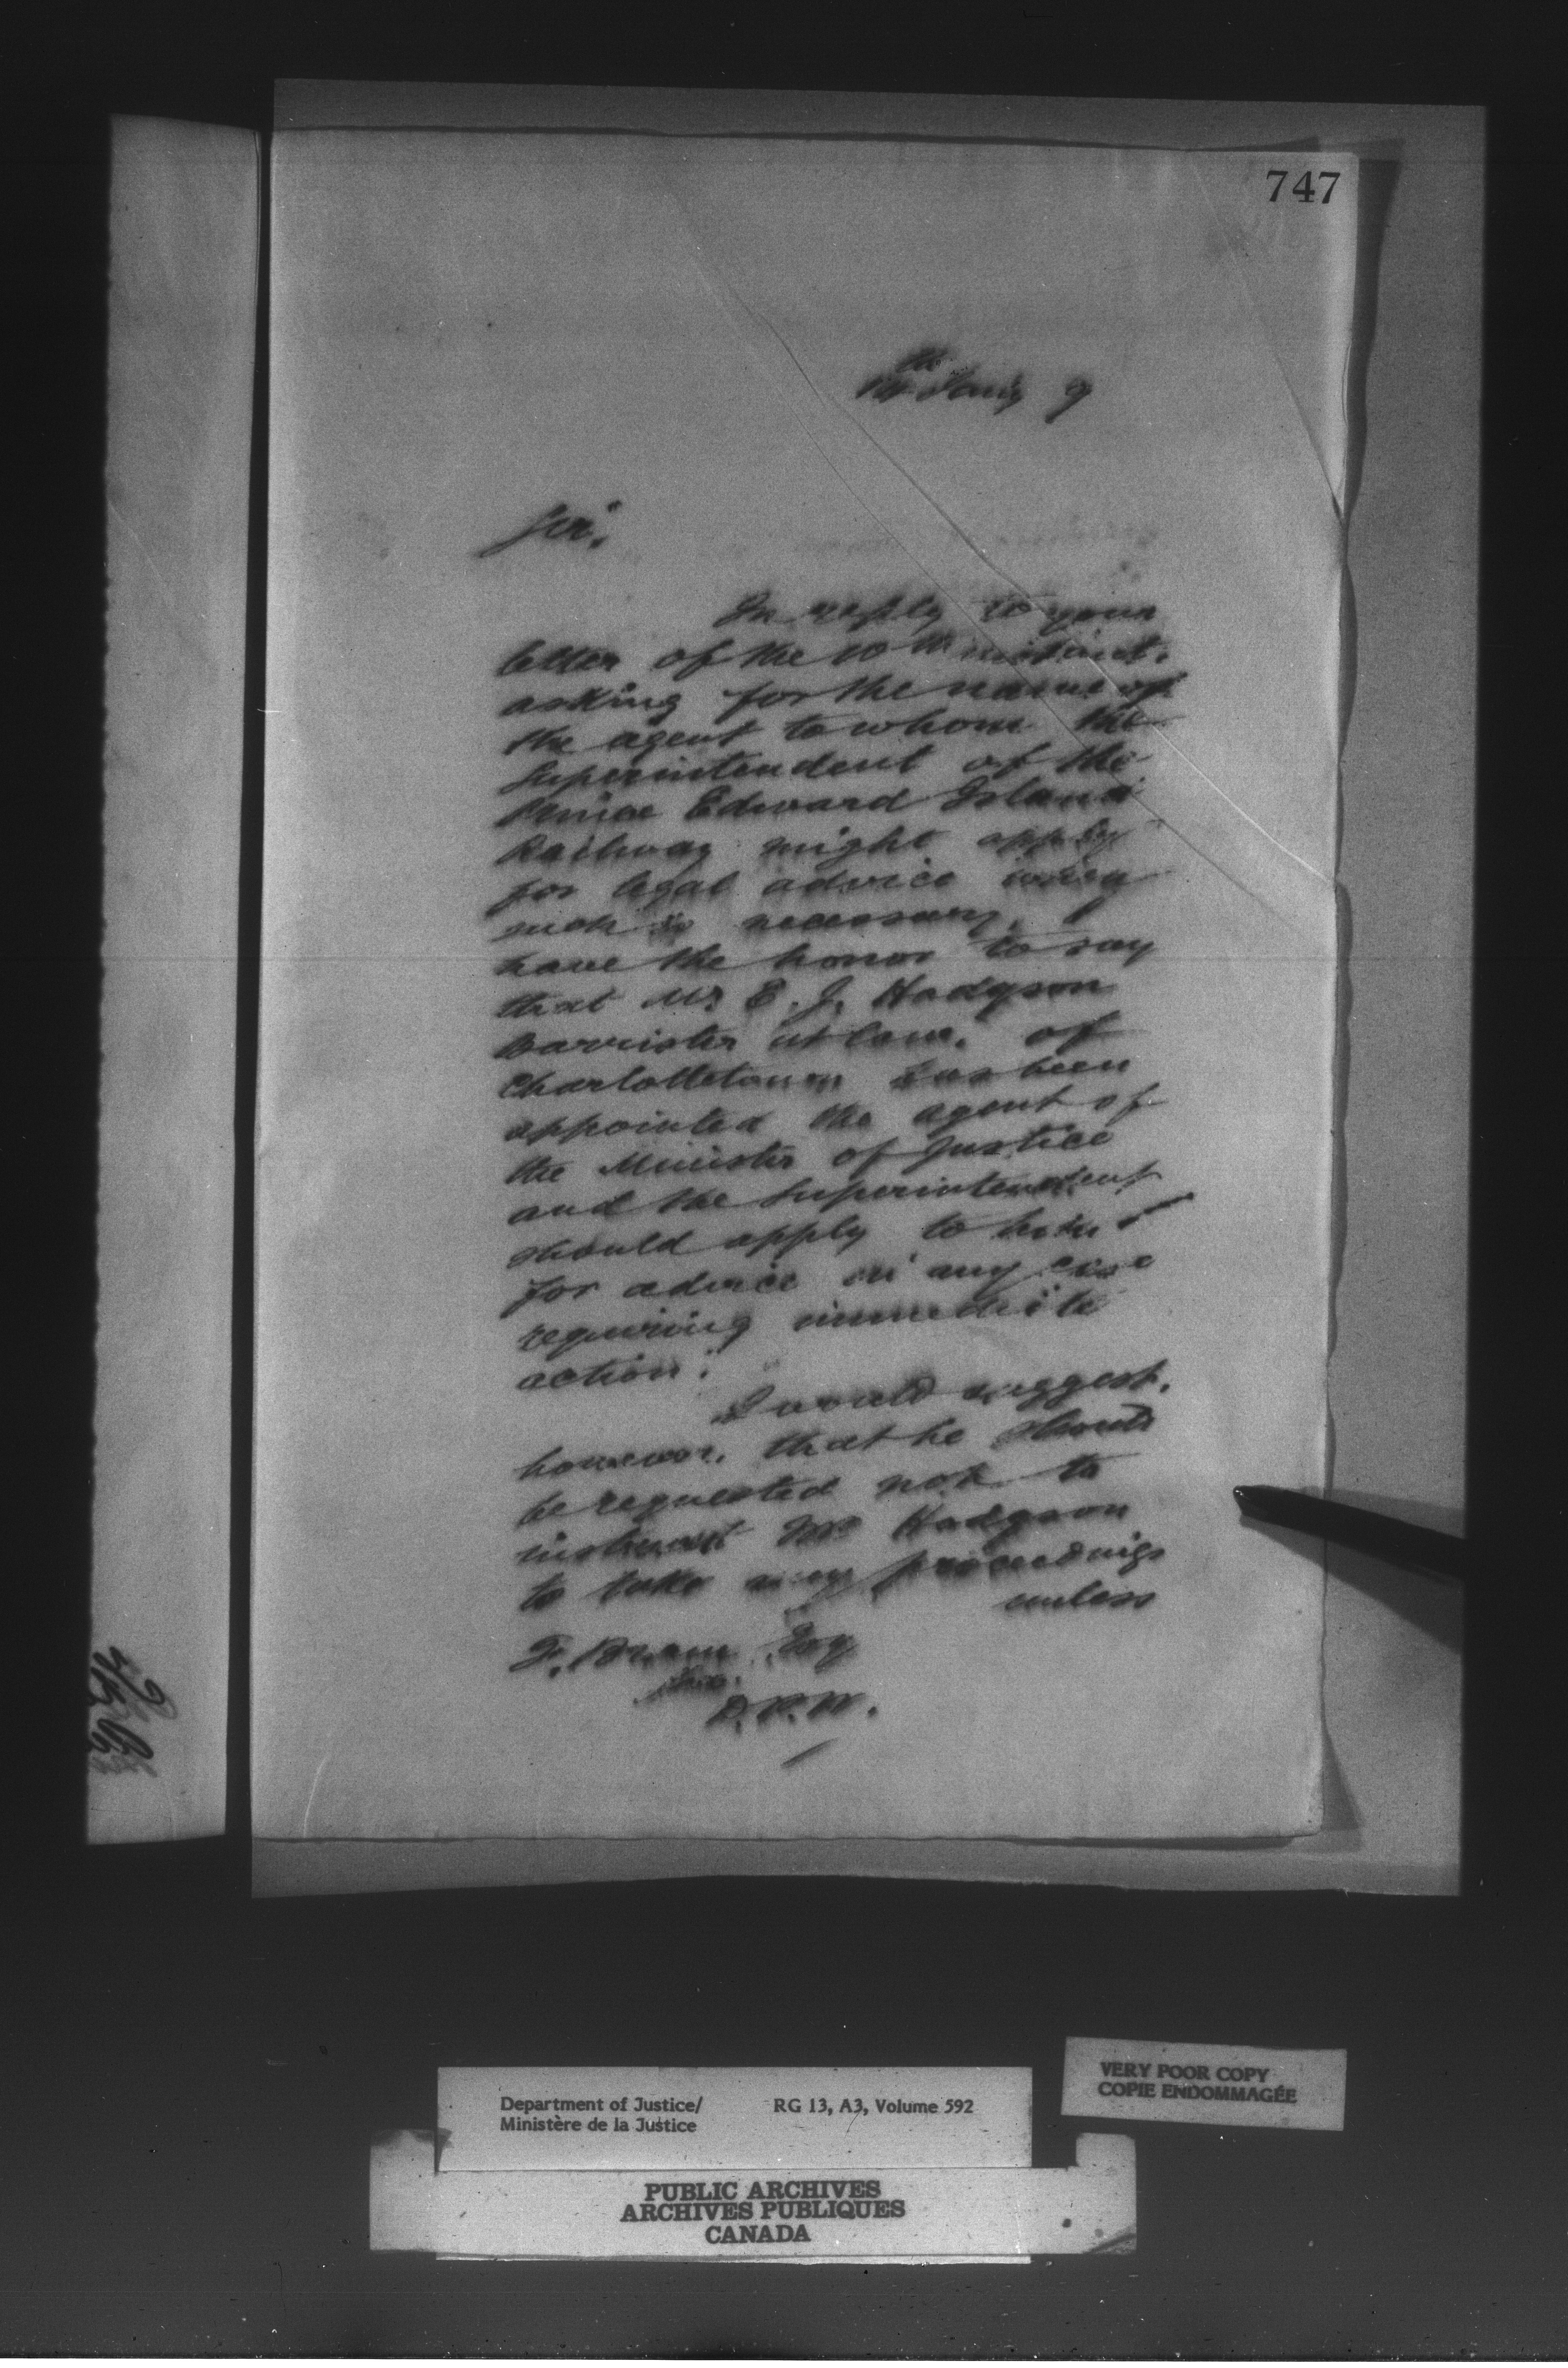 747
th
Jany 9
Sir,
In reply to your
letter of the 10th instant,
asking for the name of
the agent to whom the
Superintendent of the
Prince Edward Island
Railway might apply
for legal advice when
such is necessary, I
have the honor to say
that Mr E. J. Hodgson
Barrister at law, of
Charlottetown has been
appointed the agent of
the Minister of Justice
and the Superintendent
should apply to him
for advice in any case
requiring immediate
action.
I would suggest,
however, that he should
be requested not to
instruct Mr Hodgson
to take any proceedings
unless
F. Braun Esq
Sec.
D.P.W.
Department of Justice/
Ministère de la Justice
RG 13, A3, Volume 592
VERY POOR COPY
COPIE ENDOMMAGÉE
PUBLIC ARCHIVES
ARCHIVES PUBLIQUES
CANADA